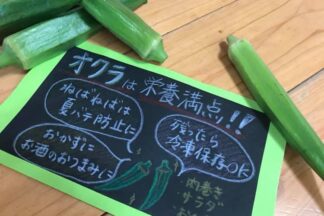 オクラは栄養満点!!
ねばねばは
夏バテ防止に
おかずに
お酒のおつまみに
残ったら
冷凍保存OKに
肉巻き
サラダ